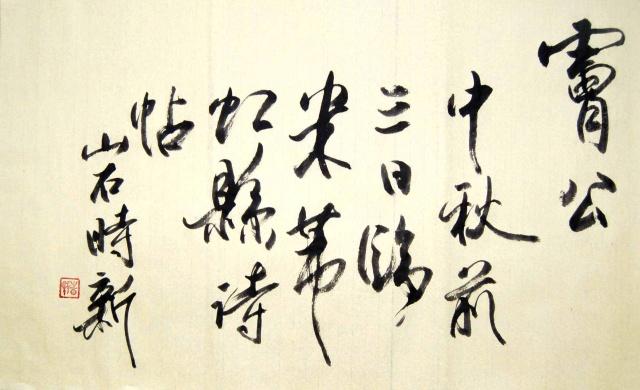 膚公
中秋前
三日臨
米芾
虹縣詩
帖
山石時新